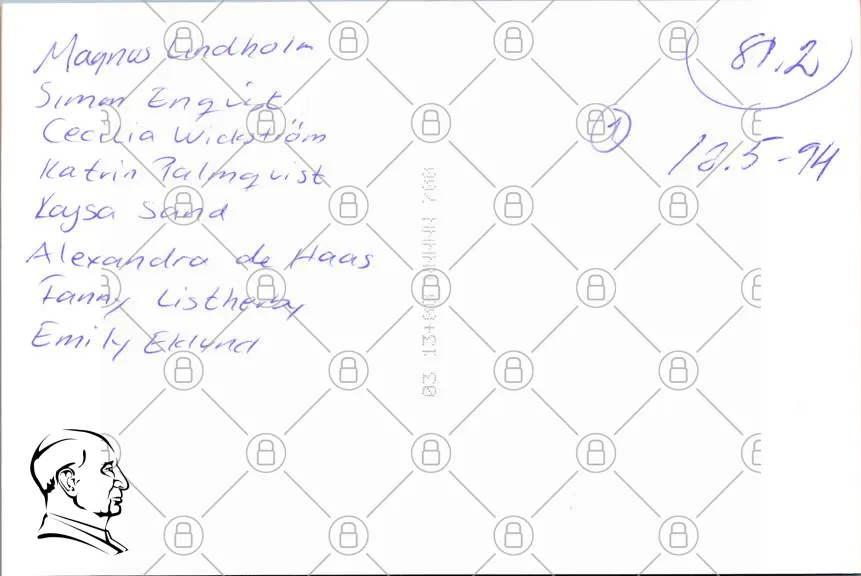 Magnus Lindholm
Simon Enqvist
Cecilia Wickström
Katrin Palmquist
Kajsa Sand
Alexandra de Haas
Fanny Listherby
Emily Eklund
81.2
1
12.5-94